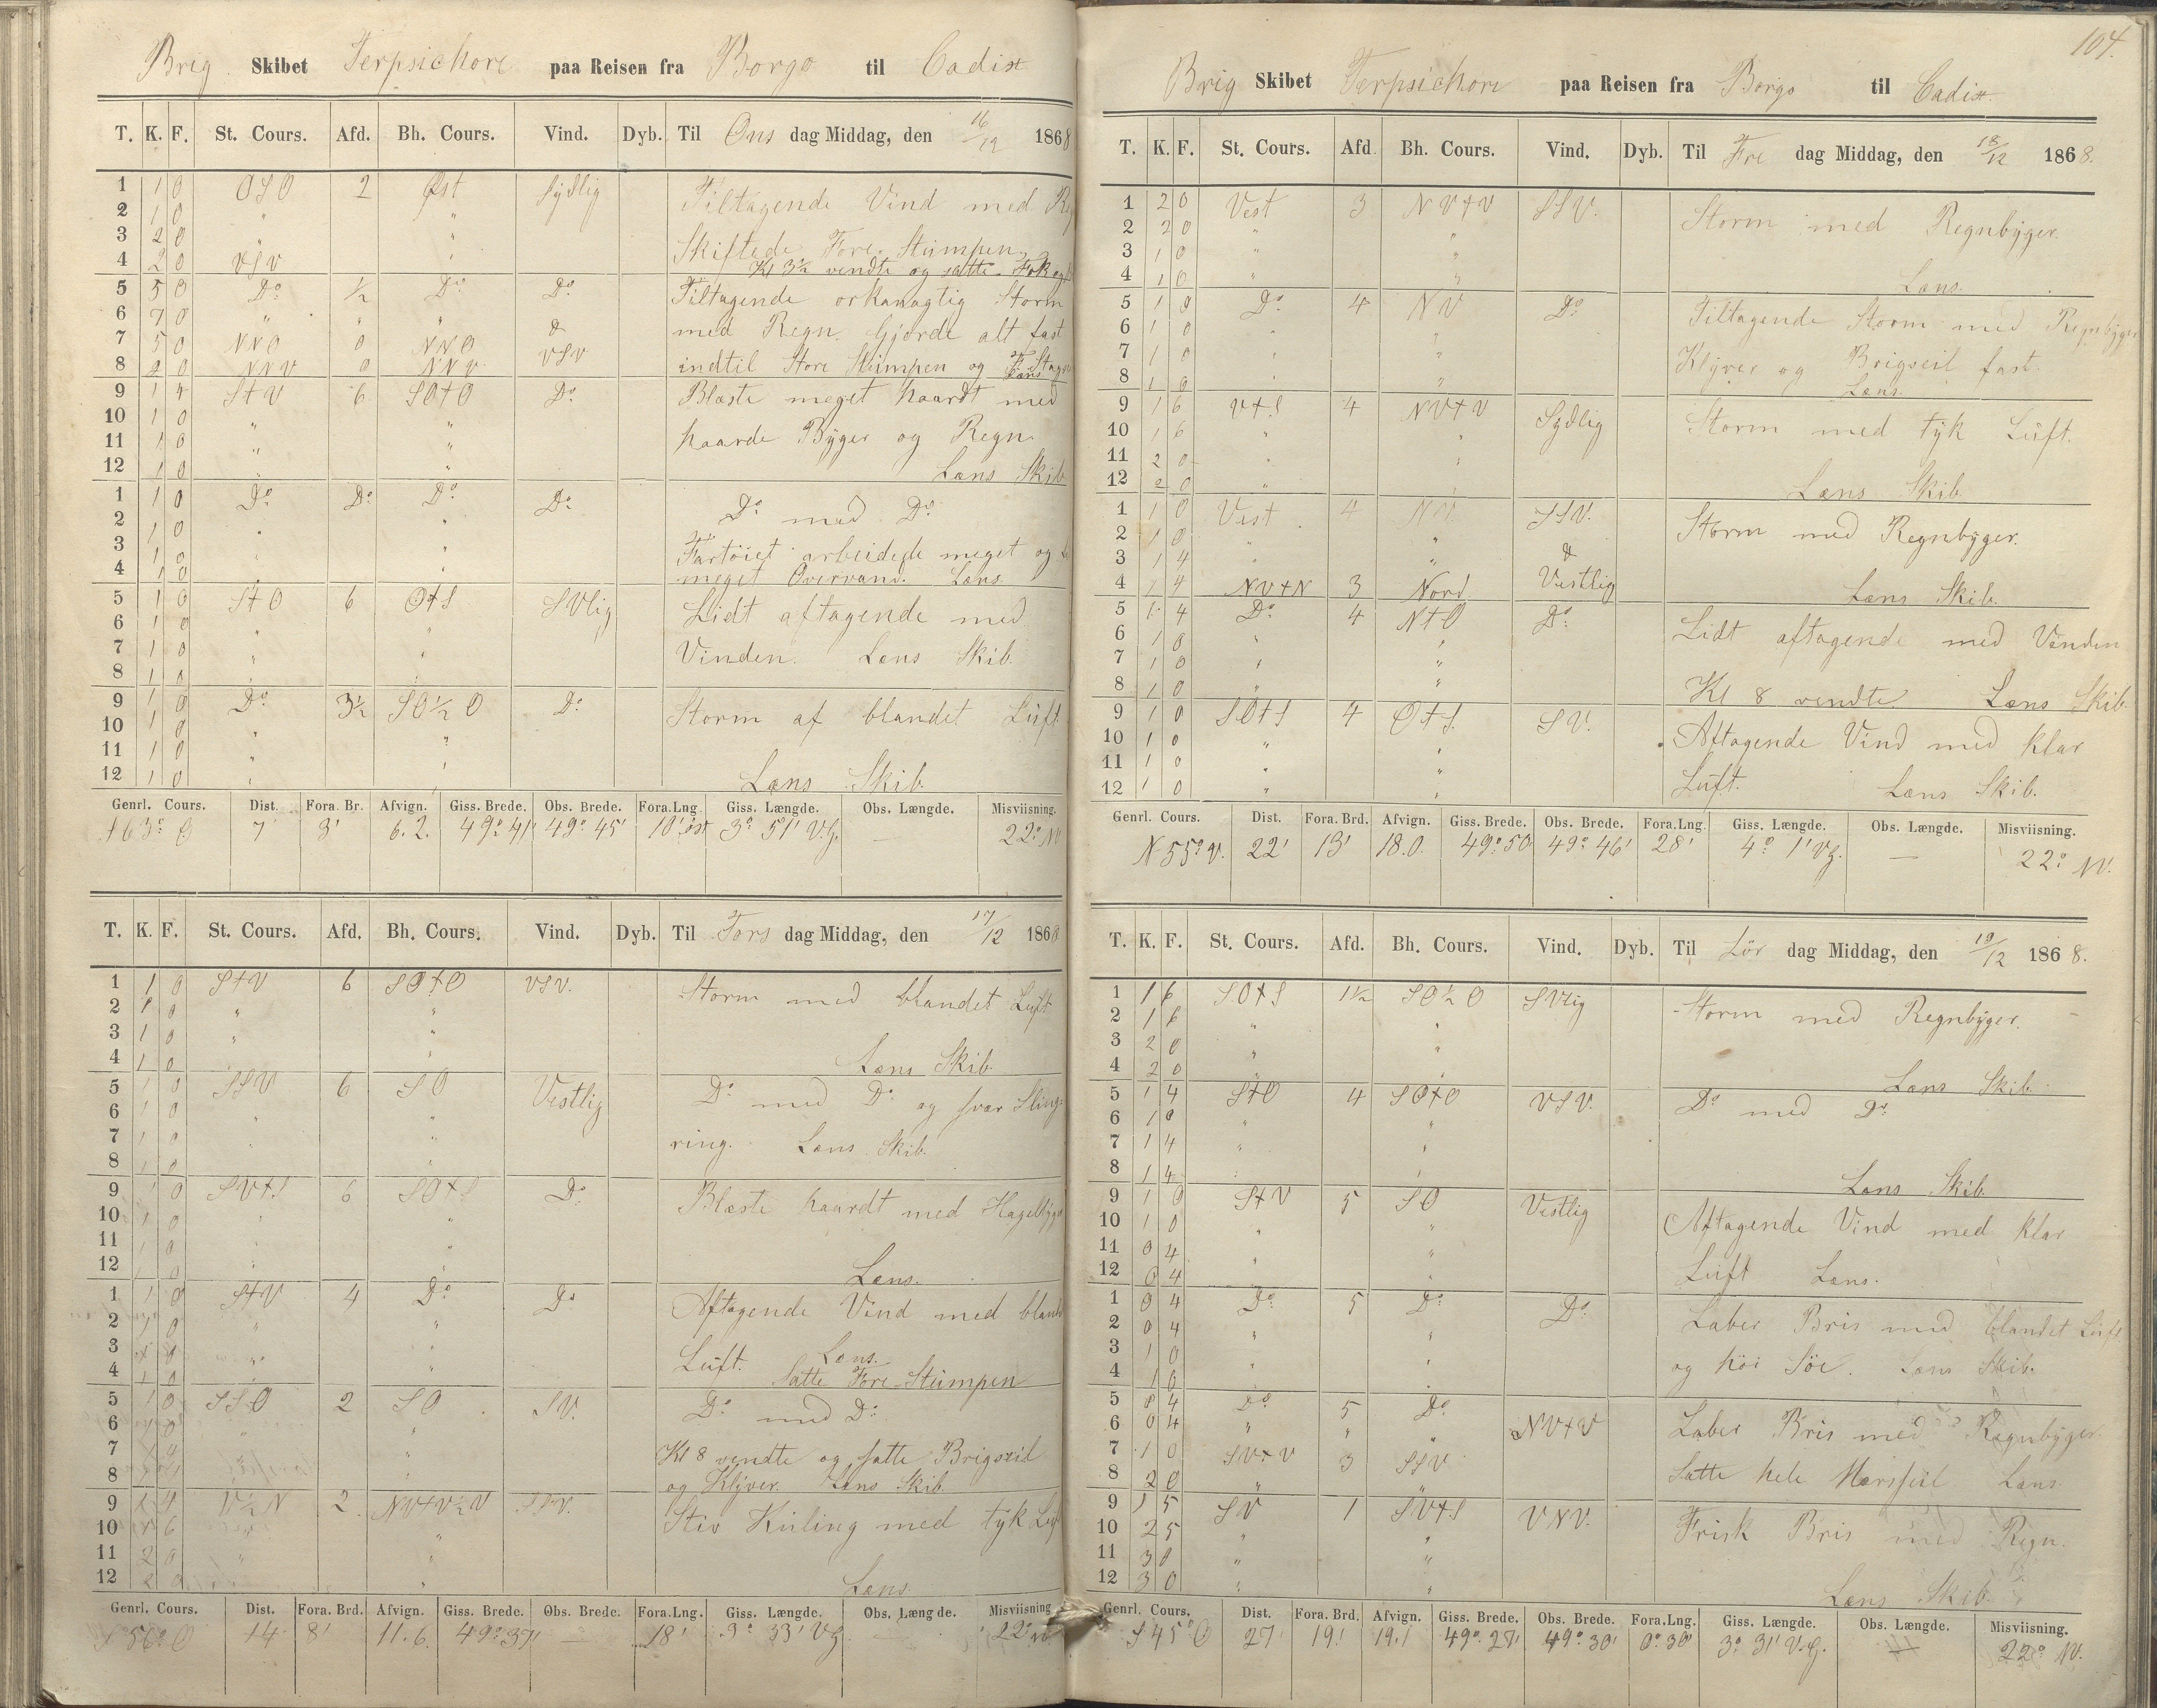 Brig Skibet Terpsichore paa Reisen fra Borgo til Cadix
T. K. F. St. Cours. Afd. Bh. Cours. Vind. Dyb. Til Ons dag Middag, den 16/12 1868
1 1 0 OSO 2 Øst Sydlig Tiltagende Vind med
2 1 0 " "
3 2 0 " " Skiftede Fore Stumpen
4 2 0 VSV " Kl 3½ vendte og satte Fok og
5 5 0 Do ½ Do Do Tiltagende orkanagtig Storm
6 7 0 " " " & med Regn. Gjorde alt fast
7 5 0 NNO 0 NNO VSV
8 2 0 NNV 0 NNV indtil Store Stumpen og F. Stag
Læns
9 1 4 StV 6 SOtO Do Blæste meget haardt med
10 1 0 " "
11 1 0 " " haarde Byger og Regn.
12 1 0 " " Læns Skib
1 1 0 Do Do Do Do Do med Do
2 1 0 " "
3 1 0 " " Fartöiet arbeidede meget og
4 1 0 " " meget Overvand. Læns
5 1 0 StO 6 OtS SVlig Lidt aftagende med
6 1 0 " "
7 1 0 " " Vinden. Læns Skib.
8 1 0 " "
9 1 0 Do 3½ SO½O Do Storm af blandet Luft
10 1 0
11 1 0 " "
12 1 0 " " Læns Skib.
Genrl. Cours. Dist. Fora. Br. Afvign. Giss. Brede. Obs. Brede. Fora. Lng. Giss. Længde. Obs. Længde. Misviisning.
S63° O 7' 3' 6.2. 49° 41' 49° 45' 10' øst 3° 51' V.G. — 22° NV
T. K. F. St. Cours. Afd. Bh. Cours. Vind. Dyb. Til Tors dag Middag, den 17/12 1868
1 1 0 StV 6 SOtO VSV. Storm med blandet Luft
2 1 0 " "
3 1 0 " "
4 1 0 " " Læns Skib.
5 1 0 SSV 6 SO Vestlig Do med Do og svær Sling-
6 1 0 " "
7 1 0 " " ring. Læns Skib.
8 1 0 " "
9 1 0 SVtS 6 SOtS Do Blæste haardt med Hagelbyger
10 1 0 " "
11 1 0 " "
12 1 0 " " Læns.
1 1 0 StV 4 Do Do Aftagende Vind med bland
2 1 0 " "
3 1 0 " " Luft. Læns.
4 1 0 " " Satte Fore-Stumpen
5 1 0 SSO 2 SO SV. Do med Do
6 1 0 " "
7 1 4 " " Kl 8 vendte og satte Brigseil
8 1 4 " " og Klyver. Læns Skib.
9 1 4 V½N 2 NVtV½V SSV. Stiv Kuling med tyk Luft
10 1 6 " "
11 2 0 " "
12 2 0 " " Læns.
Genrl. Cours. Dist. Fora. Brd. Afvign. Giss. Brede. Obs. Brede. Fora. Lng. Giss. Længde. Obs. Længde. Misviisning
S56° O 14 8' 11.6. 49° 37' — 18' 3° 33' VG — 22° NV
104.
Brig Skibet Terpsichore paa Reisen fra Borgo til Cadix.
T. K. F. St. Cours. Afd. Bh. Cours. Vind. Dyb. Til Fre dag Middag, den 18/12 1868.
1 2 0 Vest 3 NVtV SSV. Storm med Regnbyger.
2 2 0 " "
3 1 0 " "
4 1 0 " " Læns.
5 1 0 Do 4 NV Do Tiltagende Storm med Regnbyger
6 1 0 " "
7 1 0 " " Klyver og Brigseil fast.
8 1 0 " " Læns.
9 1 6 VtS 4 NVtV Sydlig Storm med tyk Luft.
10 1 6 " "
11 2 0 " "
12 2 0 " " Læns Skib.
1 1 0 Vest 4 NV. SSV. Storm med Regnbyger.
2 1 0 " "
3 1 4 " " &
4 1 4 NVtN 3 Nord Vestlig Læns Skib.
5 1 4 Do 4 NtO Do Lidt aftagende med Vinden
6 1 0 " "
7 1 0 " "
8 1 0 " " Kl 8 vendte Læns Skib.
9 1 0 SOtS 4 OtS. SV. Aftagende Vind med klar
10 1 0 " "
11 1 0 " "
12 1 0 " " Luft. Læns Skib.
Genrl. Cours. Dist. Fora. Brd. Afvign. Giss. Brede. Obs. Brede. Fora. Lng. Giss. Længde. Obs. Længde. Misviisning.
N55° V. 22' 13' 18.0. 49° 50 49° 46' 28' 4° 1' VG. — 22° NV.
T. K. F. St. Cours. Afd. Bh. Cours. Vind. Dyb. Til Lör dag Middag, den 19/12 1868.
1 1 6 SOtS 1½ SO½O SVlig Storm med Regnbyger.
2 1 6 " "
3 2 0 " "
4 2 0 " " Læns Skib.
5 1 4 StO 4 SOtO VSV. Do med Do
6 1 0 " "
7 1 4 " "
8 1 4 " " Læns Skib.
9 1 0 StV 5 SO Vestlig Aftagende Vind med klar
10 1 0 " "
11 0 4 " "
12 0 4 " " Luft Læns.
1 0 4 Do 5 Do Do Laber Bris med blandet Luft
2 0 4 " "
3 1 0 " " og höi Söe. Læns Skib.
4 1 0 "
5 0 4 Do 5 Do Laber Bris med Regnbyger
6 0 4 " " " NVtV
7 1 0 SVtV 3 SSV Satte hele Mersseil Læns
8 2 0 " "
9 1 5 SV 1 SVtS VNV. Frisk Bris med Regn.
10 2 5 " "
11 3 0 " "
12 3 0 " " Læns Skib.
Genrl. Cours. Dist. Fora. Brd. Afvign. Giss. Brede. Obs. Brede. Fora. Lng. Giss. Længde. Obs. Længde. Misviisning.
S45° O 27 19' 19.1 49° 27' 49° 30' 0° 30' 3° 31' V.G. — 22° NV.